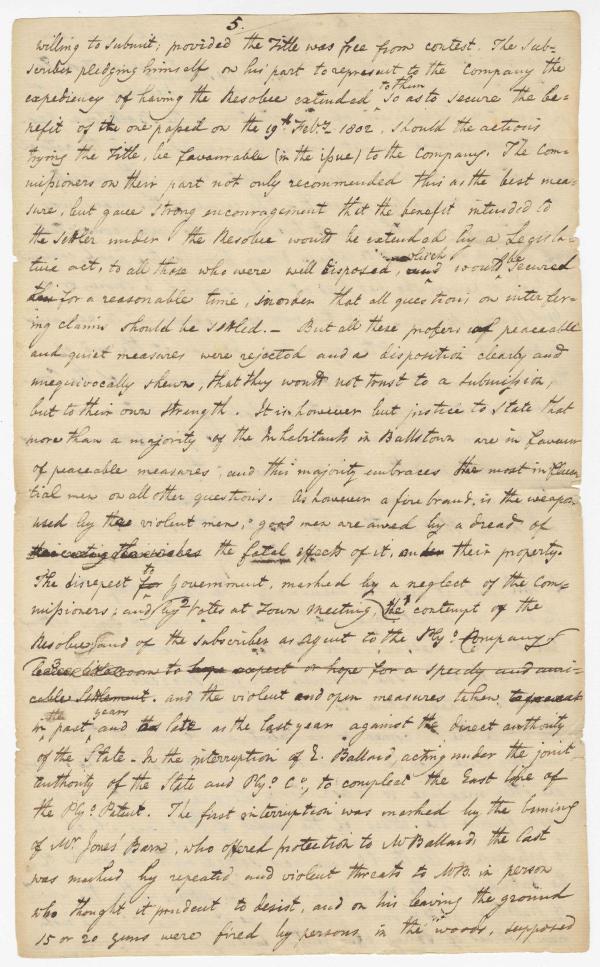 5.
willing to submit; provided the Title was free from contest. The Sub-
scriber pledging himself on his part to represent to the Company the
expediency of having the Resolve extended to them so as to secure the be-
nefit of the one passed on the 19th Feby. 1802, should the actions
trying the Title, be favourable (in the issue) to the Company. The Com-
missioners on their part not only recommended this as the best mea-
sure, but gave strong encouragement that the benefit intended to
the Settler under the Resolve would be extended by a Legisla-
tive act, to all those who were well disposed, which would be secured
for a reasonable time, inorder that all questions on interfer-
ing claims should be settled. – But all these profers of peaceable
and quiet measures were rejected and a disposition clearly and
unequivocally shewn, that they would not trust to a submission,
but to their own strength. It is however but justice to State that
more than a majority of the Inhabitants in Ballstown are in favour
of peaceable measures, and this majority embraces the most influen-
tial men on all other questions. As however a fire brand, is the weapon
used by the violent men, good men are awed by a dread of
the fatal effects of it, on their property.
The disrepect to Government, marked by a neglect of the Com-
missioners; and by Votes at Town meeting, the contempt of the
Resolve, and of the Subscriber as agent to the Plyo. Company
to hope expect or hope for a speedy and ami-
cable Settlement. and the violent and open measures taken
in the past years and as late as the last year against the direct authority
of the State – In the interruption of E. Ballard, acting under the joint
authority of the State and Plyo. Co., to compleat the East line of
the Plyo. Patent. The first interruption was marked by the burning
of Mr Jones' Barn, who offered protection to Mr Ballard, the last
was marked by repeated and violent threats to Mr B. in person
who thought it prudent to desist, and on his leaving the ground
15 or 20 guns were fired by persons in the woods, supposed